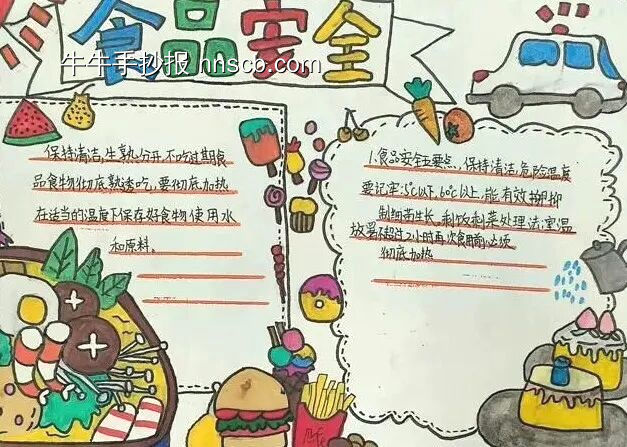 食品安全
牛牛手抄报 hnscb.com
保持清洁,生熟分开,不吃过期食
品食物彻底熟透吃,要彻底加热
在适当的温度下保存好食物使用水
和原料。
1、食品安全五要点、保持清洁,危险温度
要记牢:5℃以下,60℃以上,能有效抑抑
制细菌生长。剩饭剩菜处理法:室温
放置不超过2小时再次食用前,必须
彻底加热